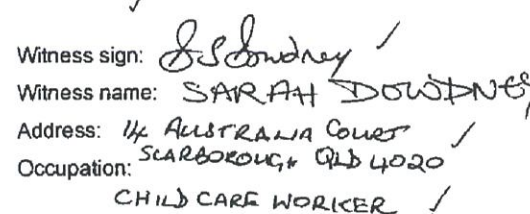 Witness sign: S Dowdney
Witness name: SARAH DOWDNEY
Address: 14 AUSTRALIA COURT
Occupation: SCARBOROUGH QLD 4020
CHILD CARE WORKER